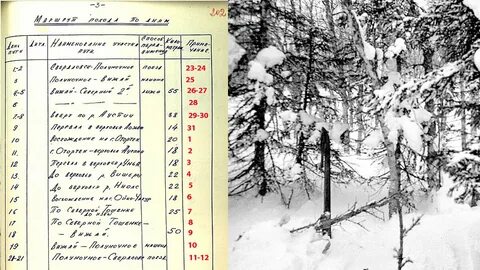 - 3 -
202
Маршрут похода по дням
День пути Дата Наименование участка пути Способ передвижения Километры Примечание
1-2 Свердловск-Полуночное поезд 23-24
3 Полуночное - Вижай машина 25
4-5 Вижай-Северный 2й лыжи 55 26-27
6 28
7-8 Вверх по р. Ауспии 58 29-30
9 Перевал в верховья Лозьвы 14 31
10 Восхождение на г. Отортен 20 1
11 г. Отортен - верховья Ауспии 18 2
12 Перевал в верховья р. Унья 18 3
13 До верховья р. Вишера 22 4
14 До верховья р. Ниолс 22 5
15 Восхождение на Ойко-Чакур 18 6
16 По Северной Тошемке 25 7
17 По Северной Тошемке - 8
18 - Вижай 50 9
19 Вижай - Полуночное машина 10
20-21 Полуночное - Свердловск поезд 11-12